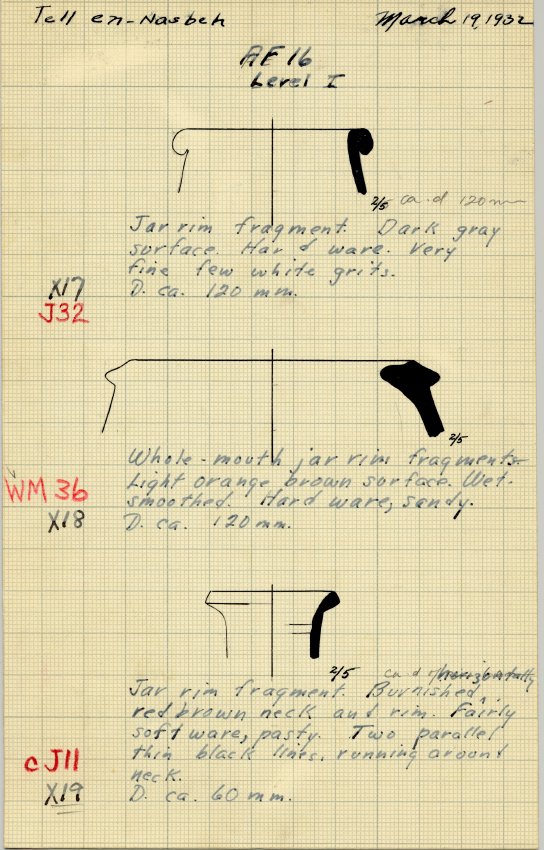 Tell en-Nasbeh March 19, 1932
AF 16
Level I
2/5 ca. d 120 mm
Jar rim fragment. Dark gray
surface. Hard ware. Very
fine few white grits.
X17 D. ca. 120 mm.
J32
2/5
Whole-mouth jar rim fragments.
Light orange brown surface. Wet-
WM 36 smoothed. Hard ware, sandy.
X18 D. ca. 120 mm.
2/5 ca d horizontally
Jar rim fragment. Burnished
red brown neck and rim. Fairly
soft ware, pasty. Two parallel
cJ11 thin black lines, running around
neck.
X19 D. ca. 60 mm.